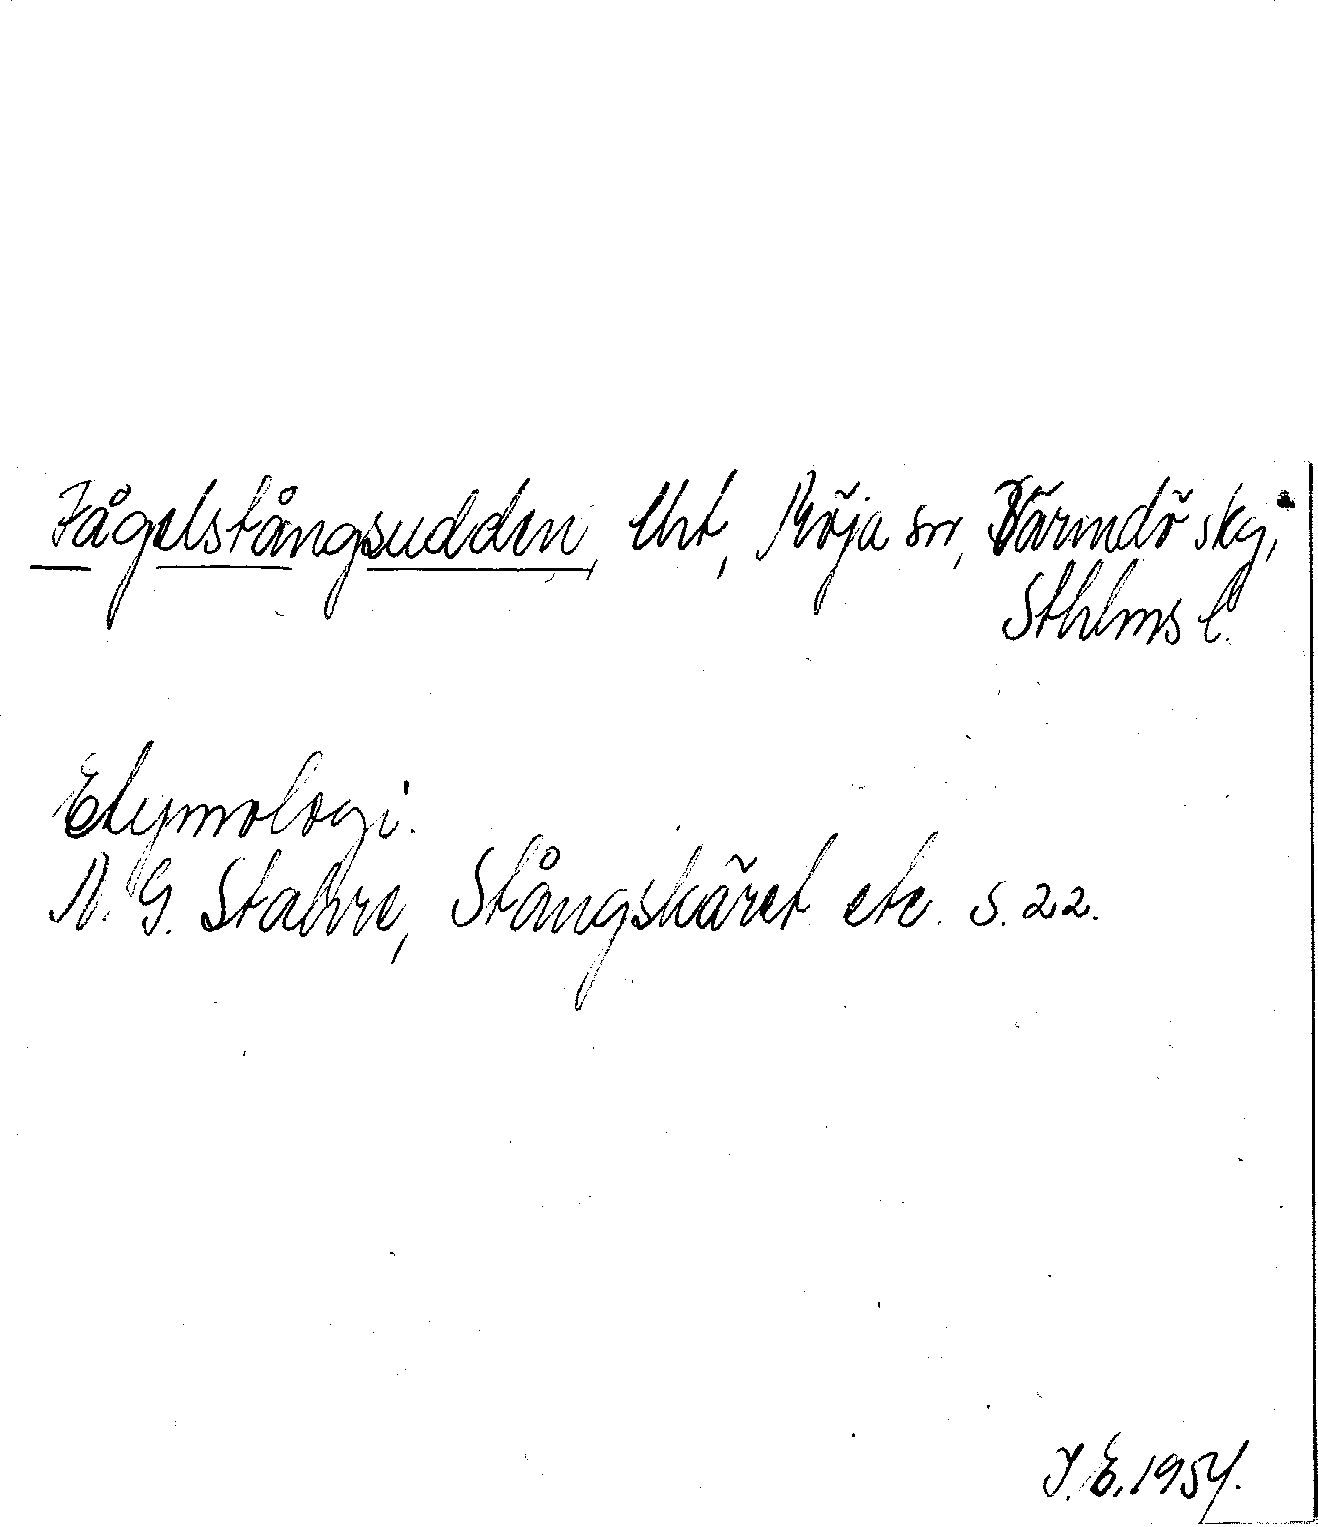 Fågelstångsudden, Urt, Möja sn, Värmdö skg,
Sthlms l.
Etymologi.
N. G. Stahre, Stångskäret etc. s. 22.
J. E. 1954.